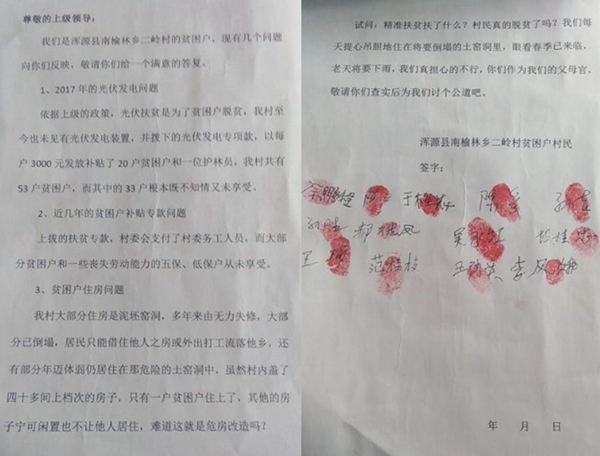 尊敬的上级领导：
我们是浑源县南榆林乡二岭村的贫困户，现有几个问题
向你们反映，敬请你们给一个满意的答复。
1、2017年的光伏发电问题
依据上级的政策，光伏扶贫是为了贫困户脱贫，我村至
今也未见有光伏发电装置，并拨下的光伏发电专项款，以每
户 3000 元发放补贴了 20 户贫困户和一位护林员，我村共有
53 户贫困户，而其中的 33 户根本既不知情又未享受。
2、近几年的贫困户补贴专款问题
上拨的扶贫专款，村委会支付了村委务工人员，而大部
分贫困户和一些丧失劳动能力的五保、低保户从未享受。
3、贫困户住房问题
我村大部分住房是泥坯窑洞，多年来由无力失修，大部
分已倒塌，居民只能借住他人之房或外出打工流落他乡，还
有部分年迈体弱仍居住在那危险的土窑洞中，虽然村内盖了
四十多间上档次的房子，只有一户贫困户住上了，其他的房
子宁可闲置也不让他人居住，难道这就是危房改造吗？
试问：精准扶贫扶了什么？村民真的脱贫了吗？我们每
天提心吊胆地住在将要倒塌的土窑洞里，眼看春季已来临，
老天将要下雨，我们真担心的不行，你们作为我们的父母官，
敬请你们查实后为我们讨个公道吧。
浑源县南榆林乡二岭村贫困户村民
签字：
范桂枝
年 月 日